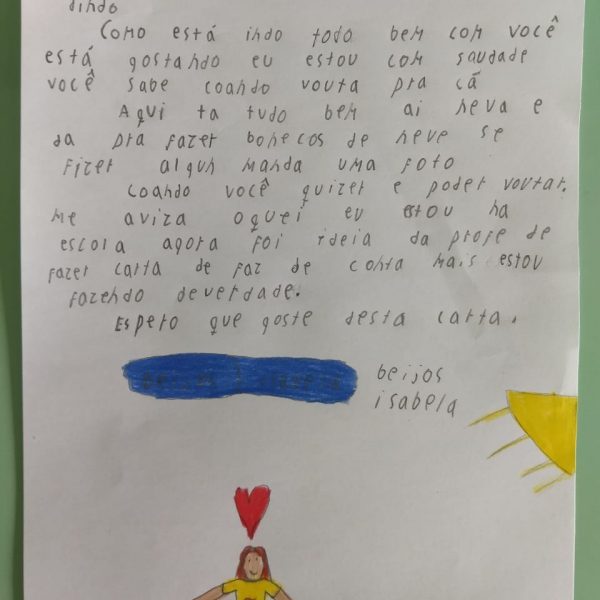 dindo
Como está indo todo bem com você
está gostando eu estou com saudade
você sabe coando vouta pra cá
Aqui ta tudo bem ai neva e
da pra fazer bonecos de neve se
fizer algun manda uma foto
coando você quizer e poder voutar.
me aviza oquei eu estou na
escola agora foi ideia da profe de
fazer carta de faz de conta mais estou
fazendo deverdade.
Espero que goste desta carta.
beijos
isabela